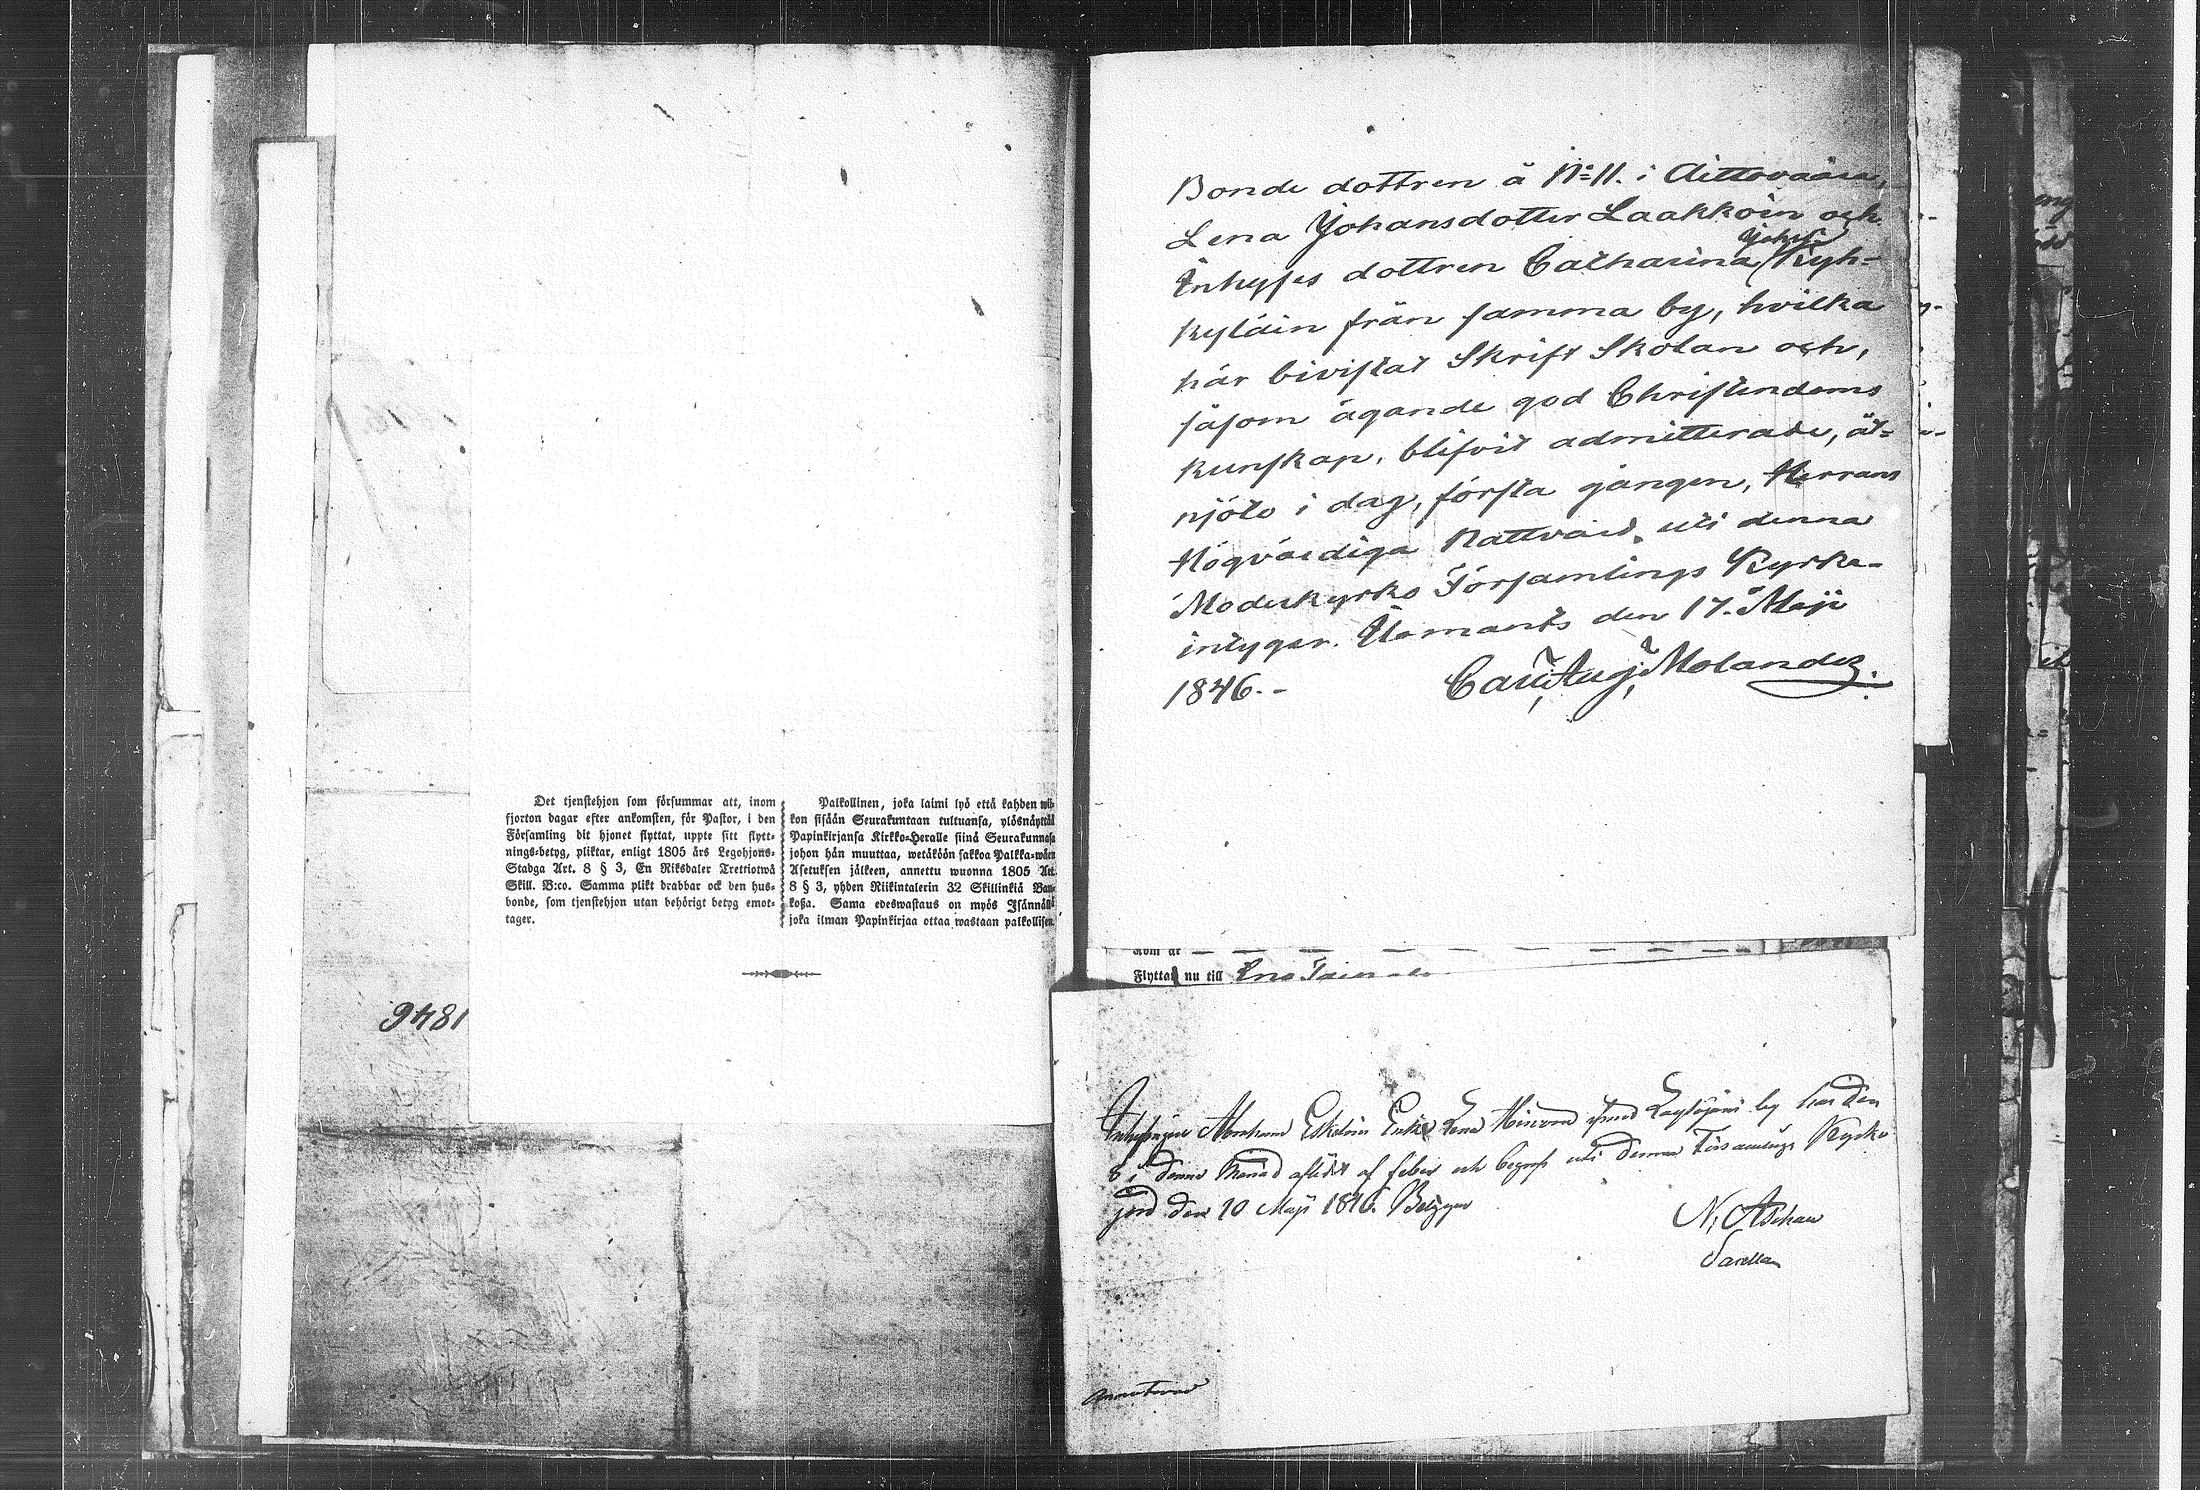 Det tjenstehjon som försummar att, inom
fjorton dagar efter ankomsten, för Pastor, i den
Församling dit hjonet flyttat, uppte sitt flytt-
nings-betyg, pliktar, enligt 1805 års Legohjons-
Stadga Art. 8 § 3, En Riksdaler Trettiotwå
Skill. B:co. Samma plikt drabbar ock den hus-
bonde, som tjenstehjon utan behörigt betyg emot-
tager.
Palkollinen, joka laimi lyö että kahden wii-
kon sisään Seurakuntaan tultuansa, ylösnäyttää
Papinkirjansa Kirkko-Heralle siinä Seurakunnasa
johon hän muuttaa, wetäköön sakkoa Palkka-wäen
Asetuksen jälkeen, annettu wuonna 1805 Art.
8 § 3, yhden Riikintalerin 32 Skillinkiä Ban-
kosa. Sama edeswastaus on myös Isännällä
joka ilman Papinkirjaa ottaa wastaan palkollisen.
1846
Bonde dottren å No 11. i Aittovaara,
Lena Johansdotter Laakkoin och
Inhyses dottren Catharina Johsd Kyh-
kyläin från samma by, hvilka
här bivistat Skrift Skolan och,
såsom ägande god Christendoms
kunskap, blifvit admitterade, åt-
njöto i dag, första gången, Herrans
Högvärdiga Nattvard, uti denna
Moderkyrko Församlings Kyrka-
intygar. Ilomants den 17. Maji
1846.-
Carl Aug. Molander.
Flyttar nu till Eno
Inhysingen Abraham Eskelins Enka Lena Hirvon ifrån by har den
8 i denne Månad aflidit af feber och begrofs uti denna Församlings Kyrko
jord den 10 Maji 1846. Betygar
N. Aschan
Annoterad